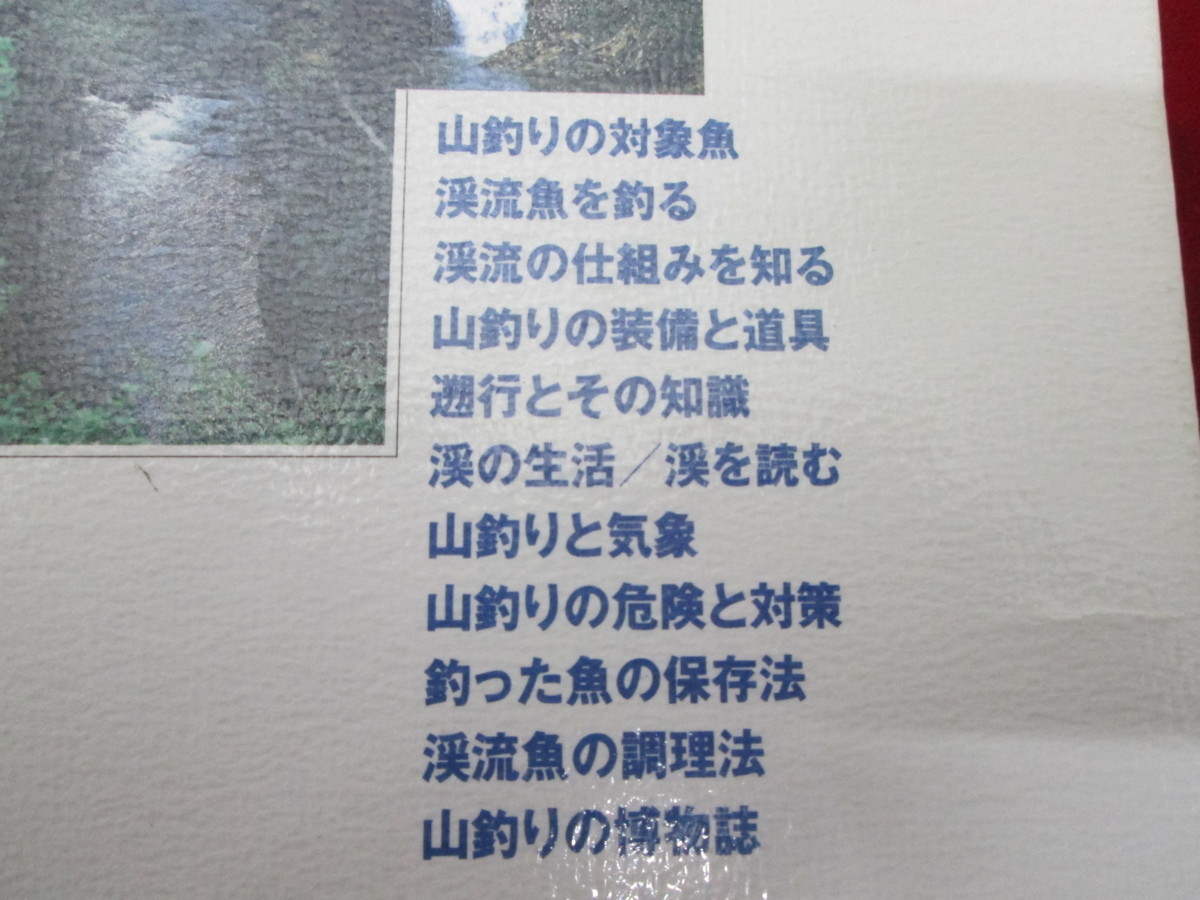 山釣りの対象魚
渓流魚を釣る
渓流の仕組みを知る
山釣りの装備と道具
遡行とその知識
渓の生活／渓を読む
山釣りと気象
山釣りの危険と対策
釣った魚の保存法
渓流魚の調理法
山釣りの博物誌